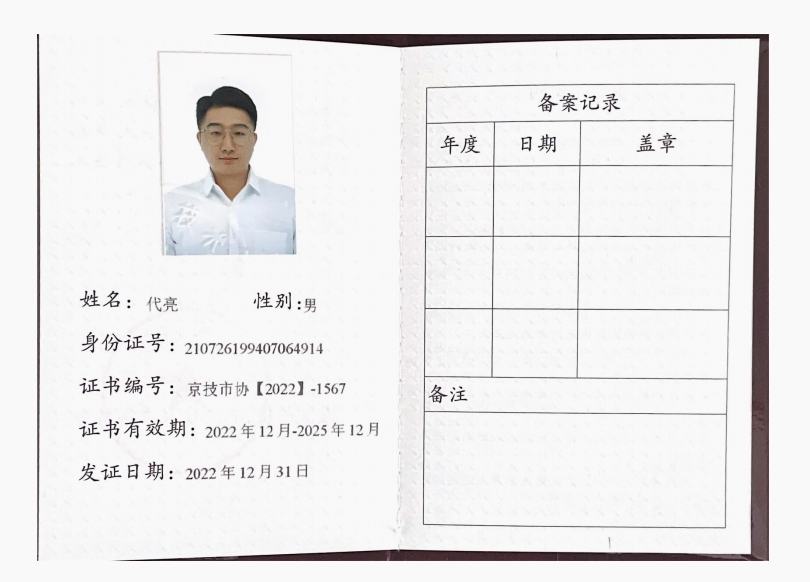 姓名：代亮 性别:男
身份证号：210726199407064914
证书编号：京技市协【2022】-1567
证书有效期：2022年12月-2025年12月
发证日期：2022年12月31日
备案记录
年度 日期 盖章
备注